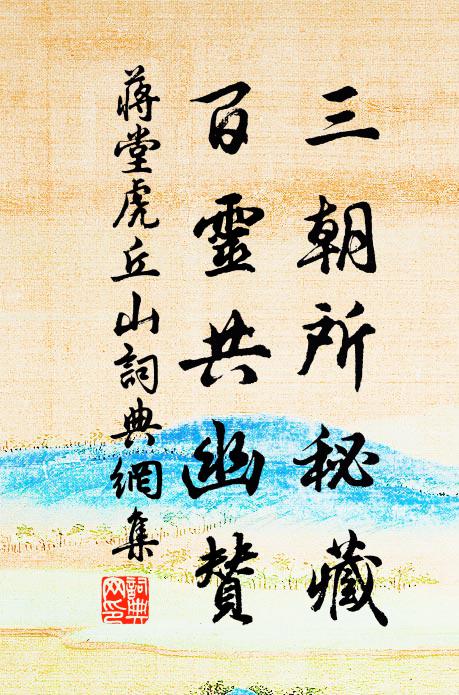 三朝所秘藏
百靈共幽贊
蔣堂虎丘山詞典網集
詞典網印